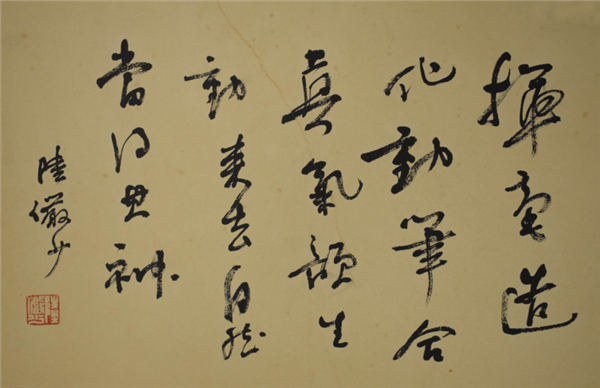 揮毫造
化動筆合
真氣韻生
動來去自然
當得其神
陸儼少